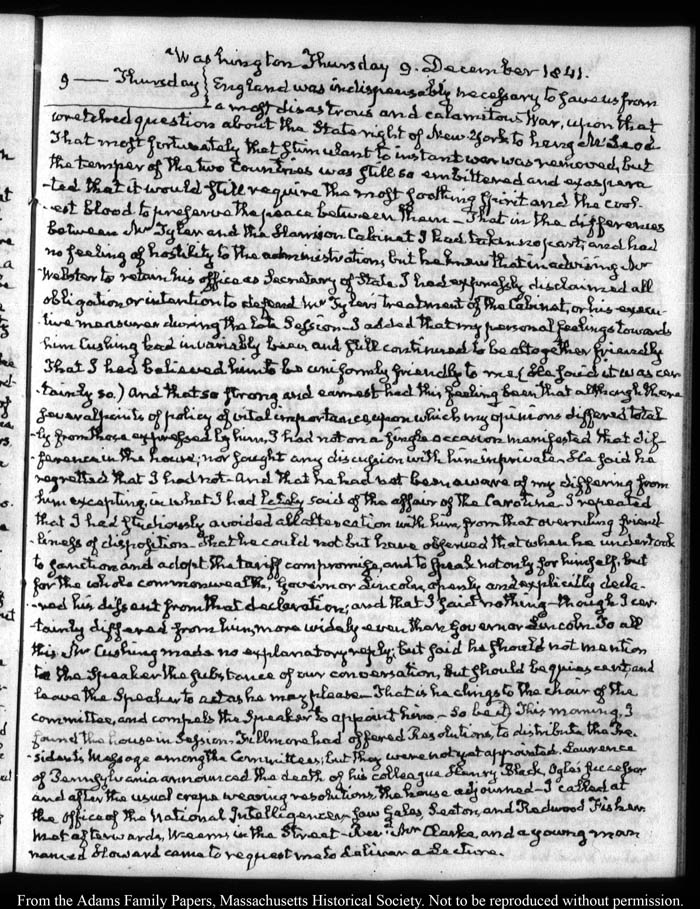 Washington Thursday 9. December 1841.
9 — Thursday { England was indispensably necessary to save us from
a most disastrous and calamitous War, upon that
wretched question about the State right of New-York to hang McLeod
That most fortunately that stimulant to instant war was removed, but
the temper of the two Countries was still so embittered and exaspera
-ted that it would still require the most soothing spirit and the cool-
-est blood to preserve the peace between them — That in the differences
between Mr Tyler and the Harrison Cabinet I had taken no part, and had
no feeling of hostility to the administration, but he knew that in advising Mr
Webster to retain his office as Secretary of State I had expressly disclaimed all
obligation or intention to defend Mr Tyler's treatment of the Cabinet, or his execu-
-tive measures during the late Session — I added that my personal feelings towards
him Cushing had invariably been and still continued to be altogether friendly
That I had believed him to be uniformly friendly to me (He said it was cer
-tainly so.) And that so strong and earnest had this feeling been that although there
several points of policy of vital importance, upon which my opinions differed total
-ly from those expressed by him, I had not on a single occasion manifested that dif-
-ference in the house; nor sought any discussion with him in private. He said he
regretted that I had not. And that he had not been aware of my differing from
him excepting in what I had lately said of the affair of the Caroline. I repeated
that I had studiously avoided all altercation with him, from that overruling friend-
-liness of disposition — That he could not but have observed that when he undertook
to sanction and adopt the tariff compromise, and to speak not only for himself, but
for the whole commonwealth, Governor Lincoln openly and explicitly decla-
-red his dissent from that declaration; and that I said nothing — though I cer
-tainly differed from him, more widely even than Governor Lincoln. To all
this Mr Cushing made no explanatory reply; but said he should not mention
to the Speaker the substance of our conversation, but should be quiescent, and
leave the Speaker to act as he may please — That is he clings to the chair of the
committee, and compels the Speaker to appoint him — So be it) This morning, I
found the house in Session. Fillmore had offered Resolutions, to distribute the Pre
-sident's Message among the Committees; but they were not yet appointed. Lawrence
of Pennsylvania announced the death of his colleague Henry Black, Ogle's successor
and after the usual crape wearing resolutions, the house adjourned — I called at
the office of the National Intelligencer — saw Gales, Seaton, and Redwood Fisher
Met afterwards, Weems in the Street — Revd Mr Clarke, and a young man
named Howard came to request me to deliver a Lecture.
From the Adams Family Papers, Massachusetts Historical Society. Not to be reproduced without permission.